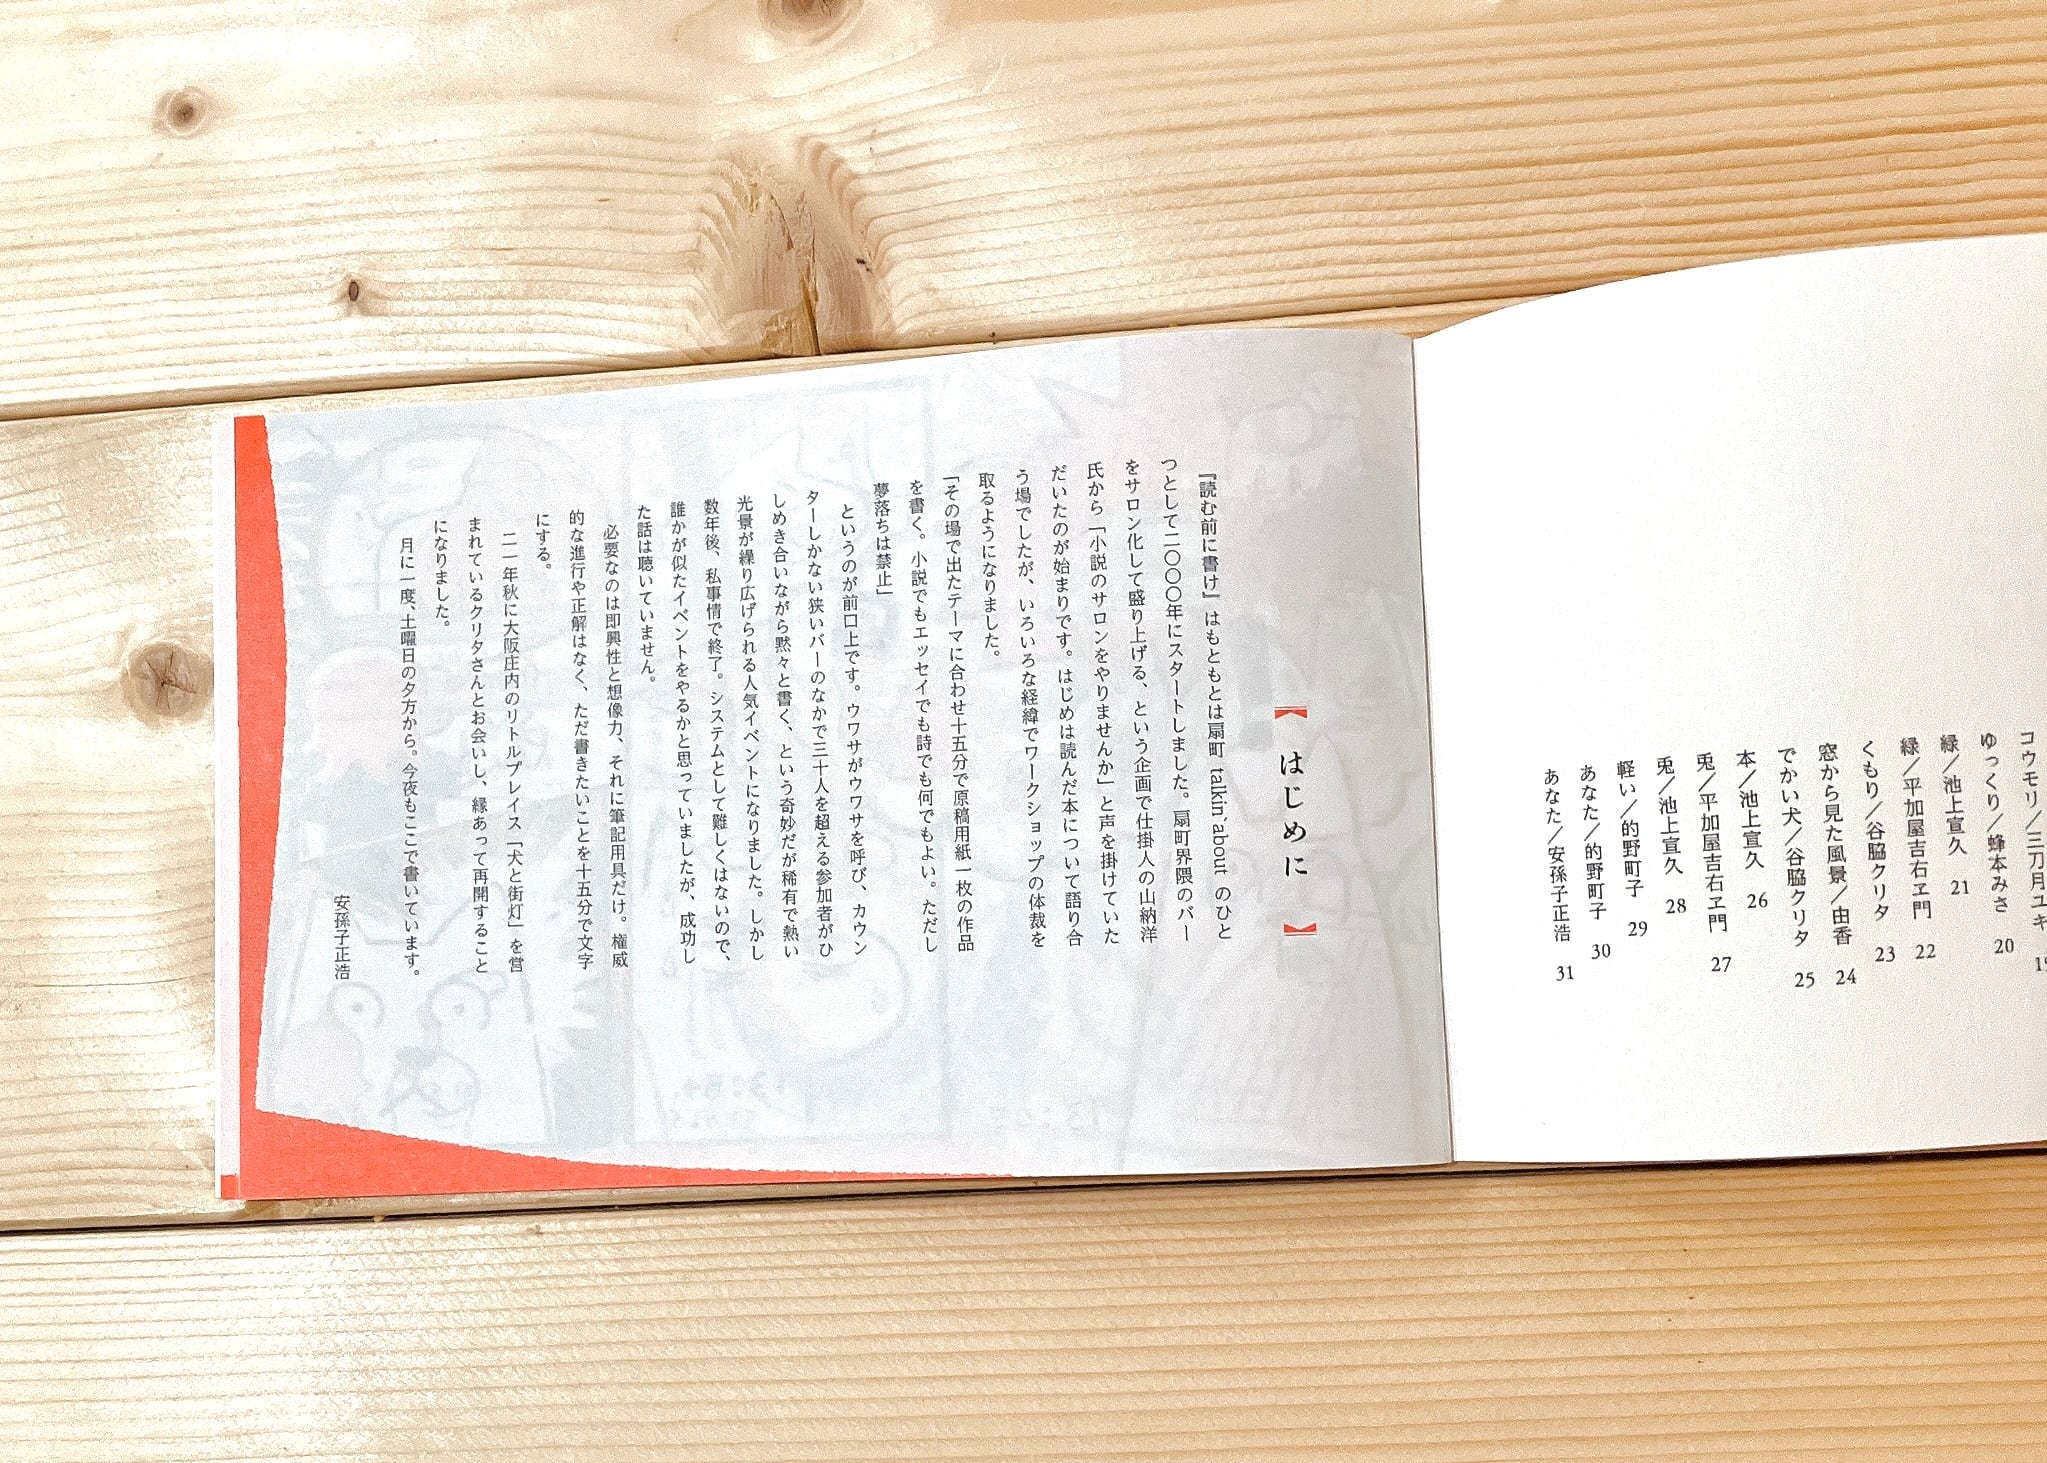 コウモリ／三刀月ユキ 19
ゆっくり／蜂本みさ 20
緑／池上宣久 21
緑／平加屋吉右ヱ門 22
くもり／谷脇クリタ 23
窓から見た風景／由香 24
でかい犬／谷脇クリタ 25
本／池上宣久 26
兎／平加屋吉右ヱ門 27
兎／池上宣久 28
軽い／的野町子 29
あなた／的野町子 30
あなた／安孫子正浩 31
【はじめに】
『読む前に書け』はもともとは扇町 talkin'about のひと
つとして二〇〇〇年にスタートしました。扇町界隈のバー
をサロン化して盛り上げる、という企画で仕掛人の山納洋
氏から「小説のサロンをやりませんか」と声を掛けていた
だいたのが始まりです。はじめは読んだ本について語り合
う場でしたが、いろいろな経緯でワークショップの体裁を
取るようになりました。
「その場で出たテーマに合わせ十五分で原稿用紙一枚の作品
を書く。小説でもエッセイでも詩でも何でもよい。ただし
夢落ちは禁止」
というのが前口上です。ウワサがウワサを呼び、カウン
ターしかない狭いバーのなかで三十人を超える参加者がひ
しめき合いながら黙々と書く、という奇妙だが稀有で熱い
光景が繰り広げられる人気イベントになりました。しかし
数年後、私事情で終了。システムとして難しくはないので、
誰かが似たイベントをやるかと思っていましたが、成功し
た話は聴いていません。
必要なのは即興性と想像力、それに筆記用具だけ。権威
的な進行や正解はなく、ただ書きたいことを十五分で文字
にする。
二一年秋に大阪庄内のリトルプレイス「犬と街灯」を営
まれているクリタさんとお会いし、縁あって再開すること
になりました。
月に一度、土曜日の夕方から。今夜もここで書いています。
安孫子正浩